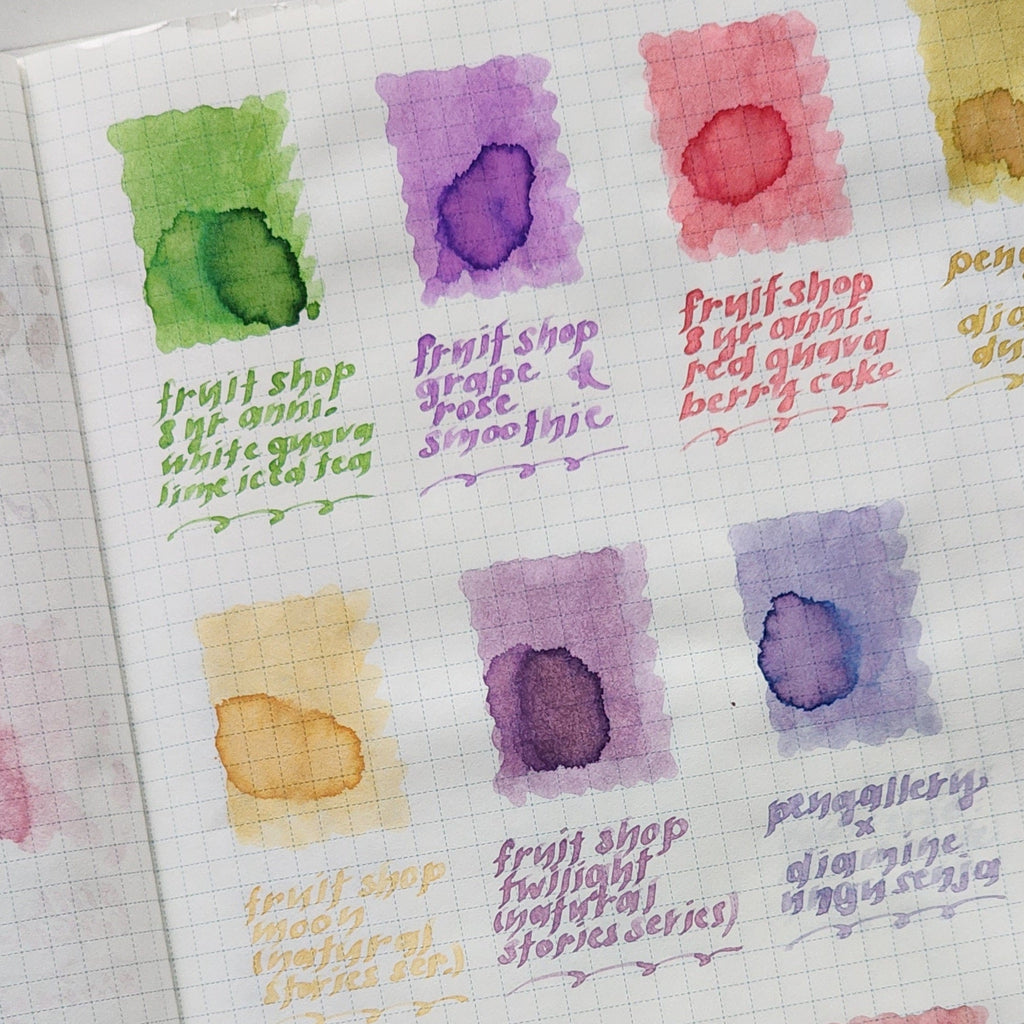 fruit shop
8 yr anni.
white guava
lime iced tea
fruit shop
grape &
rose
smoothie
fruit shop
8 yr anni.
red guava
berry cake
fruit shop
moon
(natural
stories ser.)
fruit shop
twilight
(natural
stories series)
pengallery
x
diamine
ungu senja